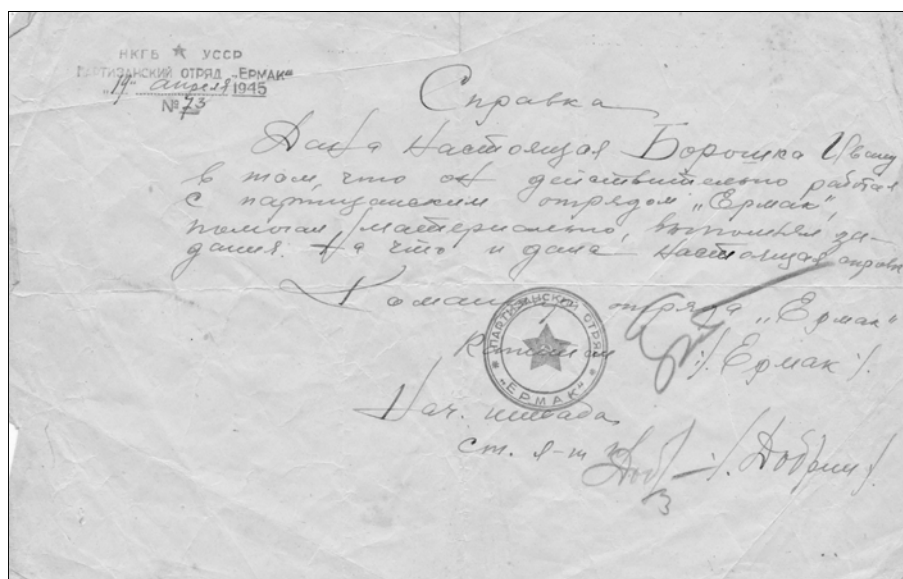 НКГБ ★ УССР
ПАРТИЗАНСКИЙ ОТРЯД „ЕРМАК“
„19“ апреля 1945
№ 73
Справка
Дана настоящая Борошка Ивану
в том, что он действительно работал
с партизанским отрядом „Ермак“,
помогал материально, выполнял за-
дания. На что и дана настоящая справка
Командир отряда „Ермак“
Капитан /. Ермак /.
Нач. штаба
ст. л-т /. Добрин /.
ПАРТИЗАНСКИЙ ОТРЯД
„ЕРМАК“